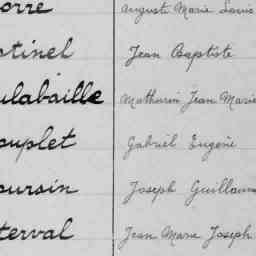 orre Auguste Marie Louis
stinel Jean Baptiste
ulabaille Mathurin Jean Marie
ouplet Gabriel Eugène
oursin Joseph Guillaume
terval Jean Marie Joseph